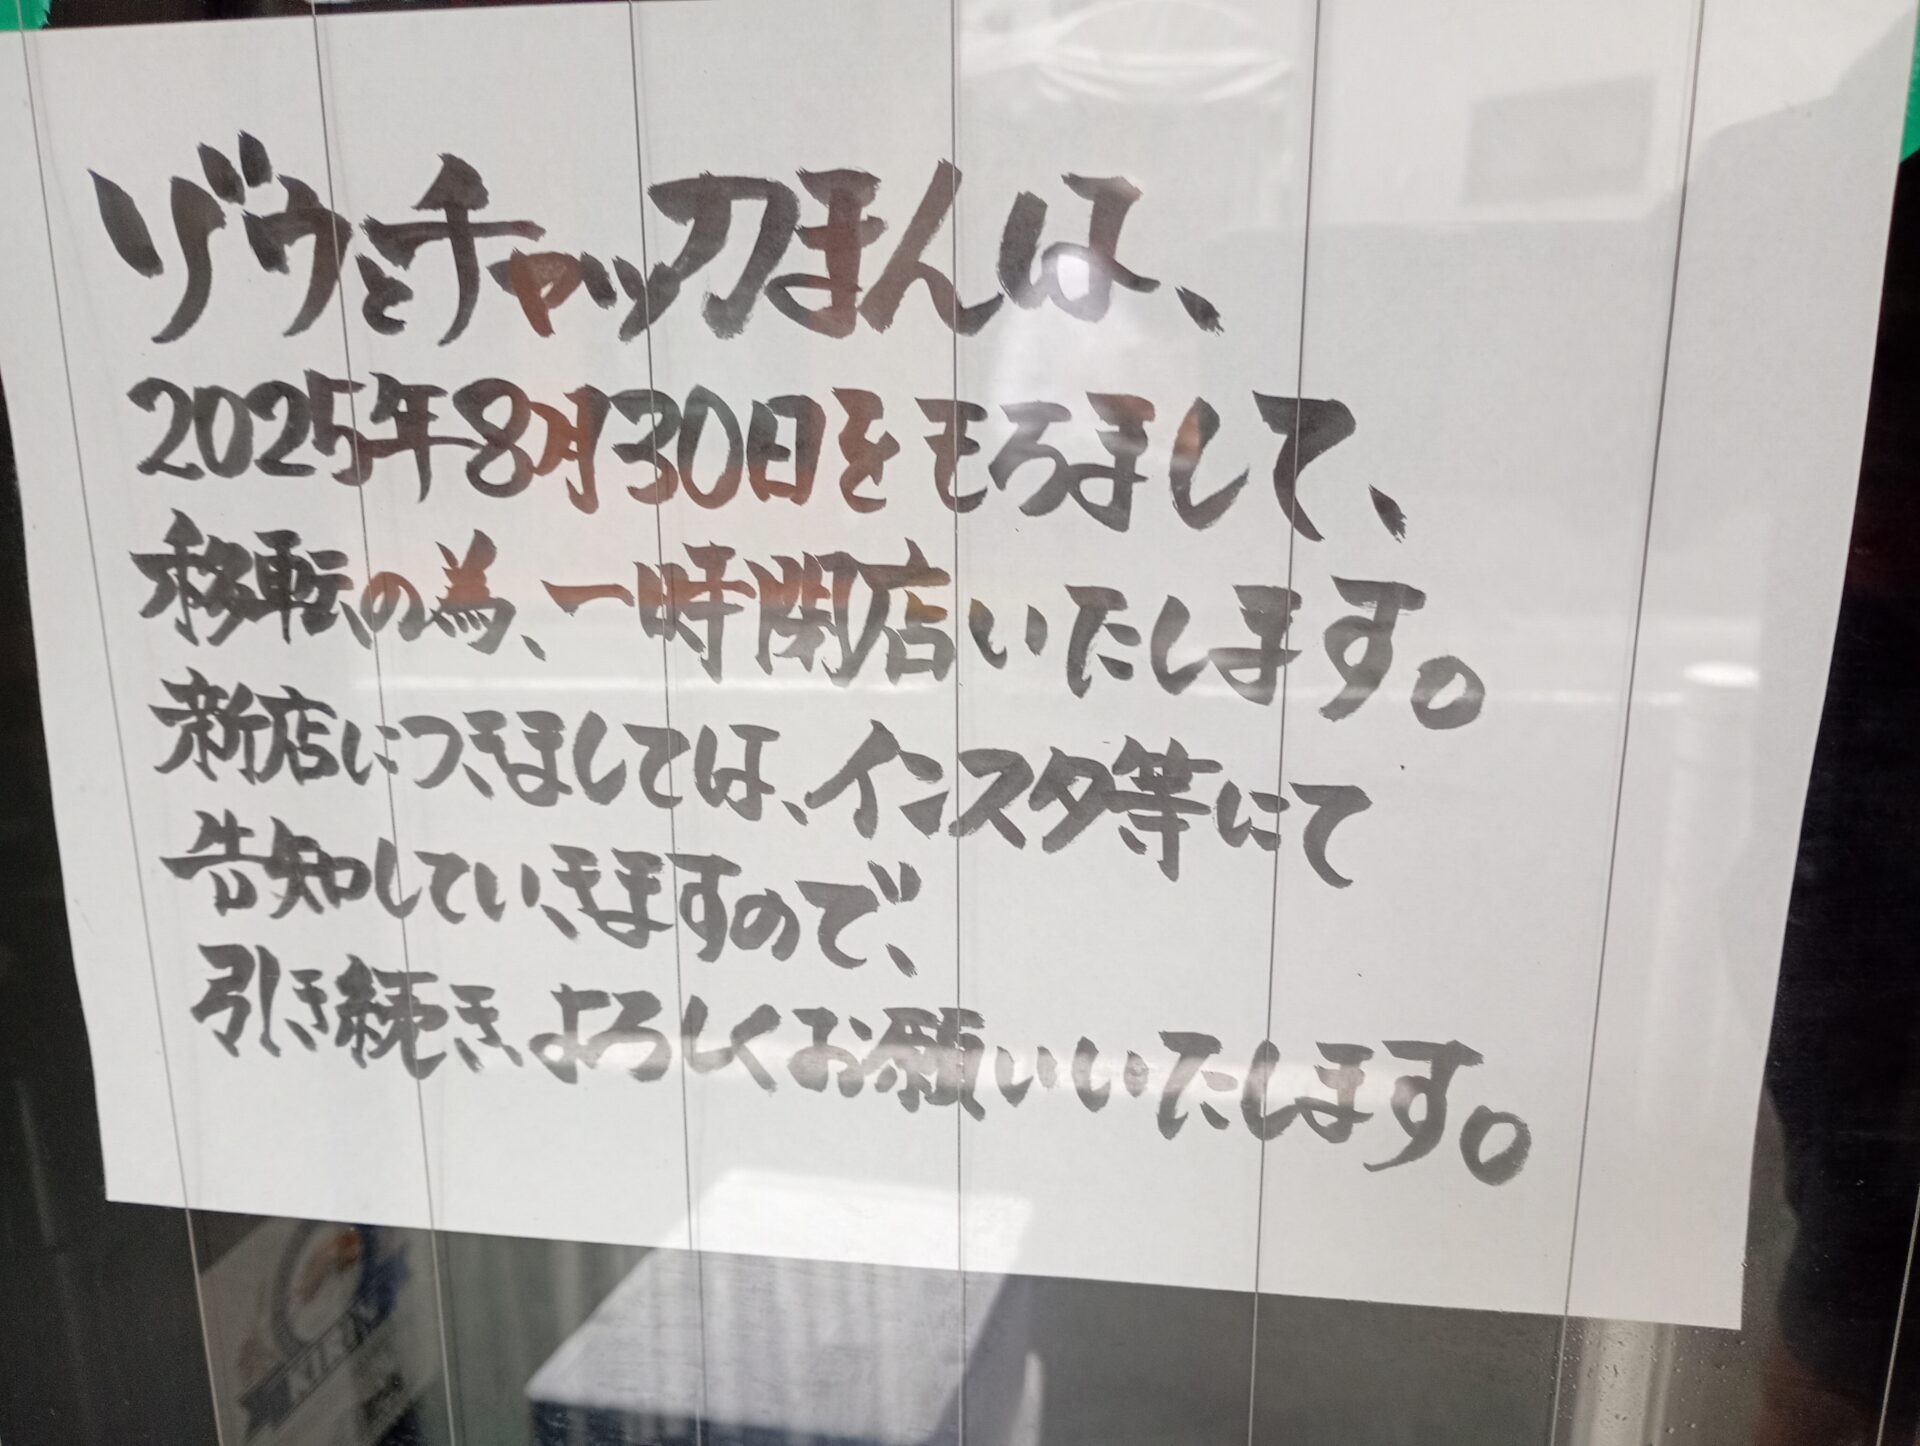 ゾウとチャッカまんは、
2025年8月30日をもちまして、
移転の為、一時閉店いたします。
新店につきましては、インスタ等にて
告知していきますので、
引き続きよろしくお願いいたします。
KIRIN